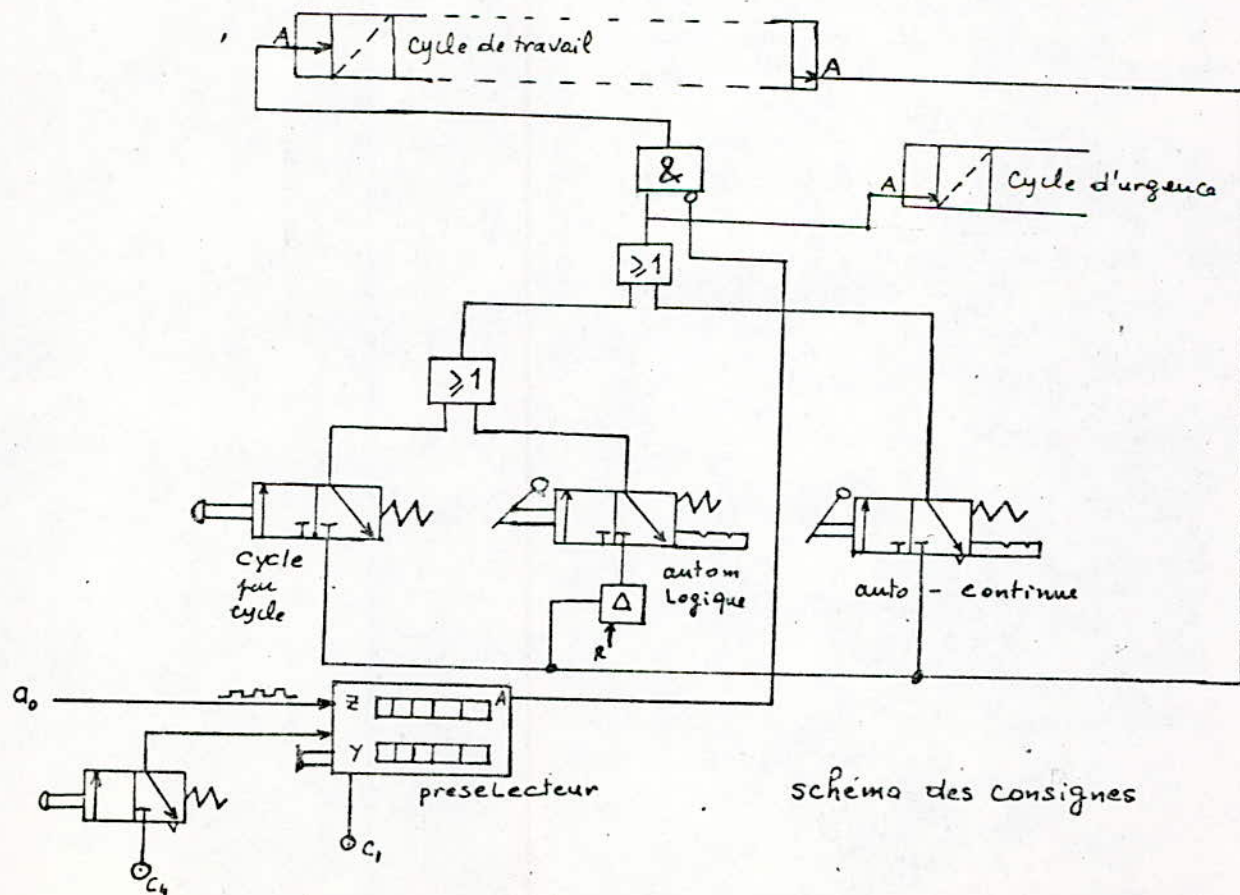 A
Cycle de travail
A
&
A
Cycle d'urgence
≥1
≥1
cycle
par
cycle
autom
logique
auto - continue
Δ
R
a₀
Z
A
Y
preselecteur
schéma des consignes
C₁
C₄